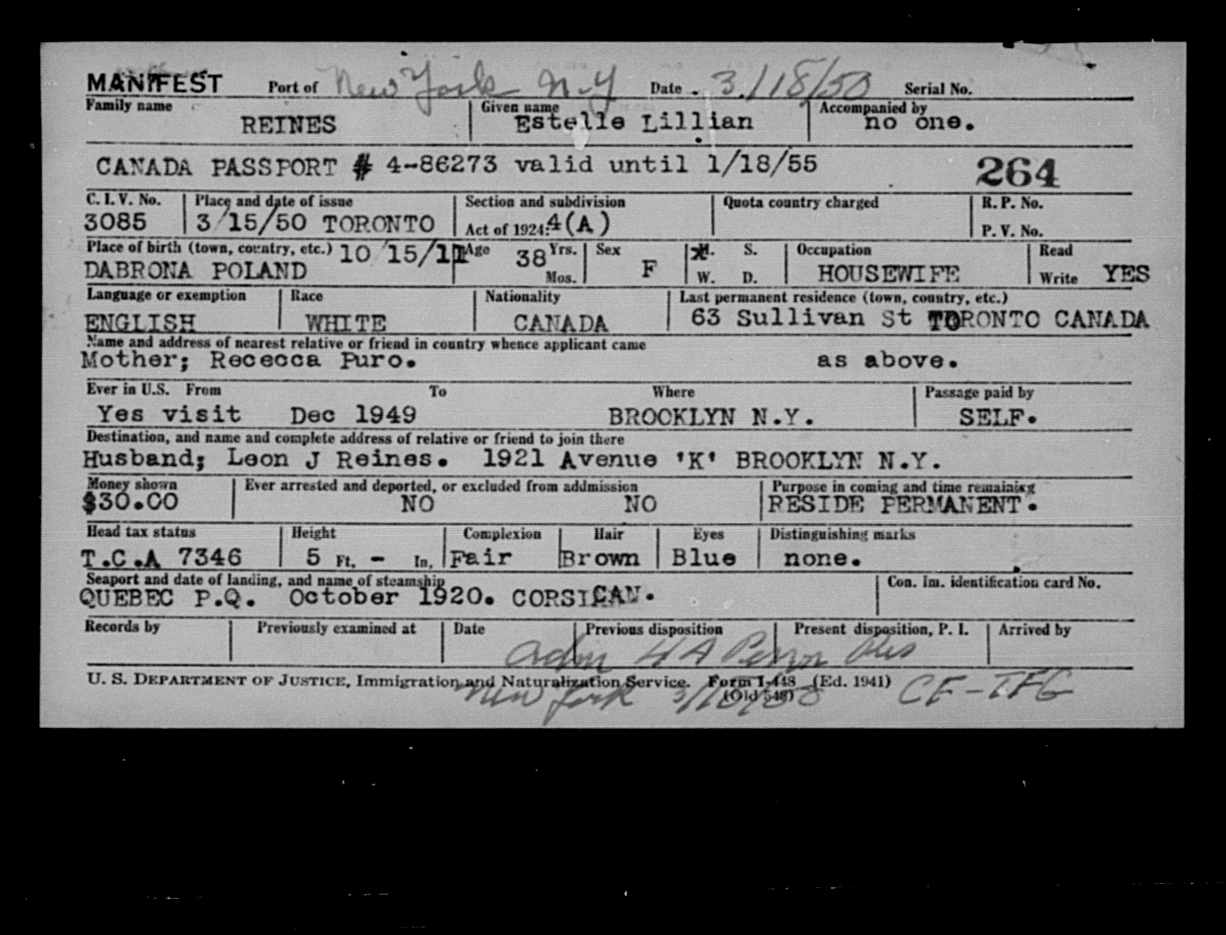 MANIFEST Port of New York N-Y Date 3/18/50 Serial No.
Family name Given name Accompanied by
REINES Estelle Lillian no one.
CANADA PASSPORT # 4-86273 valid until 1/18/55 264
C. I. V. No. Place and date of issue Section and subdivision Quota country charged R. P. No.
3085 3/15/50 TORONTO Act of 1924: 4(A) P. V. No.
Place of birth (town, country, etc.) 10/15/11 Age 38 Yrs. Sex M. S. Occupation Read
DABRONA POLAND Mos. F W. D. HOUSEWIFE Write YES
Language or exemption Race Nationality Last permanent residence (town, country, etc.)
ENGLISH WHITE CANADA 63 Sullivan St TORONTO CANADA
Name and address of nearest relative or friend in country whence applicant came
Mother; Rececca Puro. as above.
Ever in U.S. From To Where Passage paid by
Yes visit Dec 1949 BROOKLYN N.Y. SELF.
Destination, and name and complete address of relative or friend to join there
Husband; Leon J Reines. 1921 Avenue 'K' BROOKLYN N.Y.
Money shown Ever arrested and deported, or excluded from addmission Purpose in coming and time remaining
$30.00 NO NO RESIDE PERMANENT.
Head tax status Height Complexion Hair Eyes Distinguishing marks
T.C.A 7346 5 Ft. - In. Fair Brown Blue none.
Seaport and date of landing, and name of steamship Con. Im. identification card No.
QUEBEC P.Q. October 1920. CORSICAN.
Records by Previously examined at Date Previous disposition Present disposition, P. I. Arrived by
U. S. DEPARTMENT OF JUSTICE, Immigration and Naturalization Service. Form I-448 (Ed. 1941)
(Old 548)
New York CF-TFG